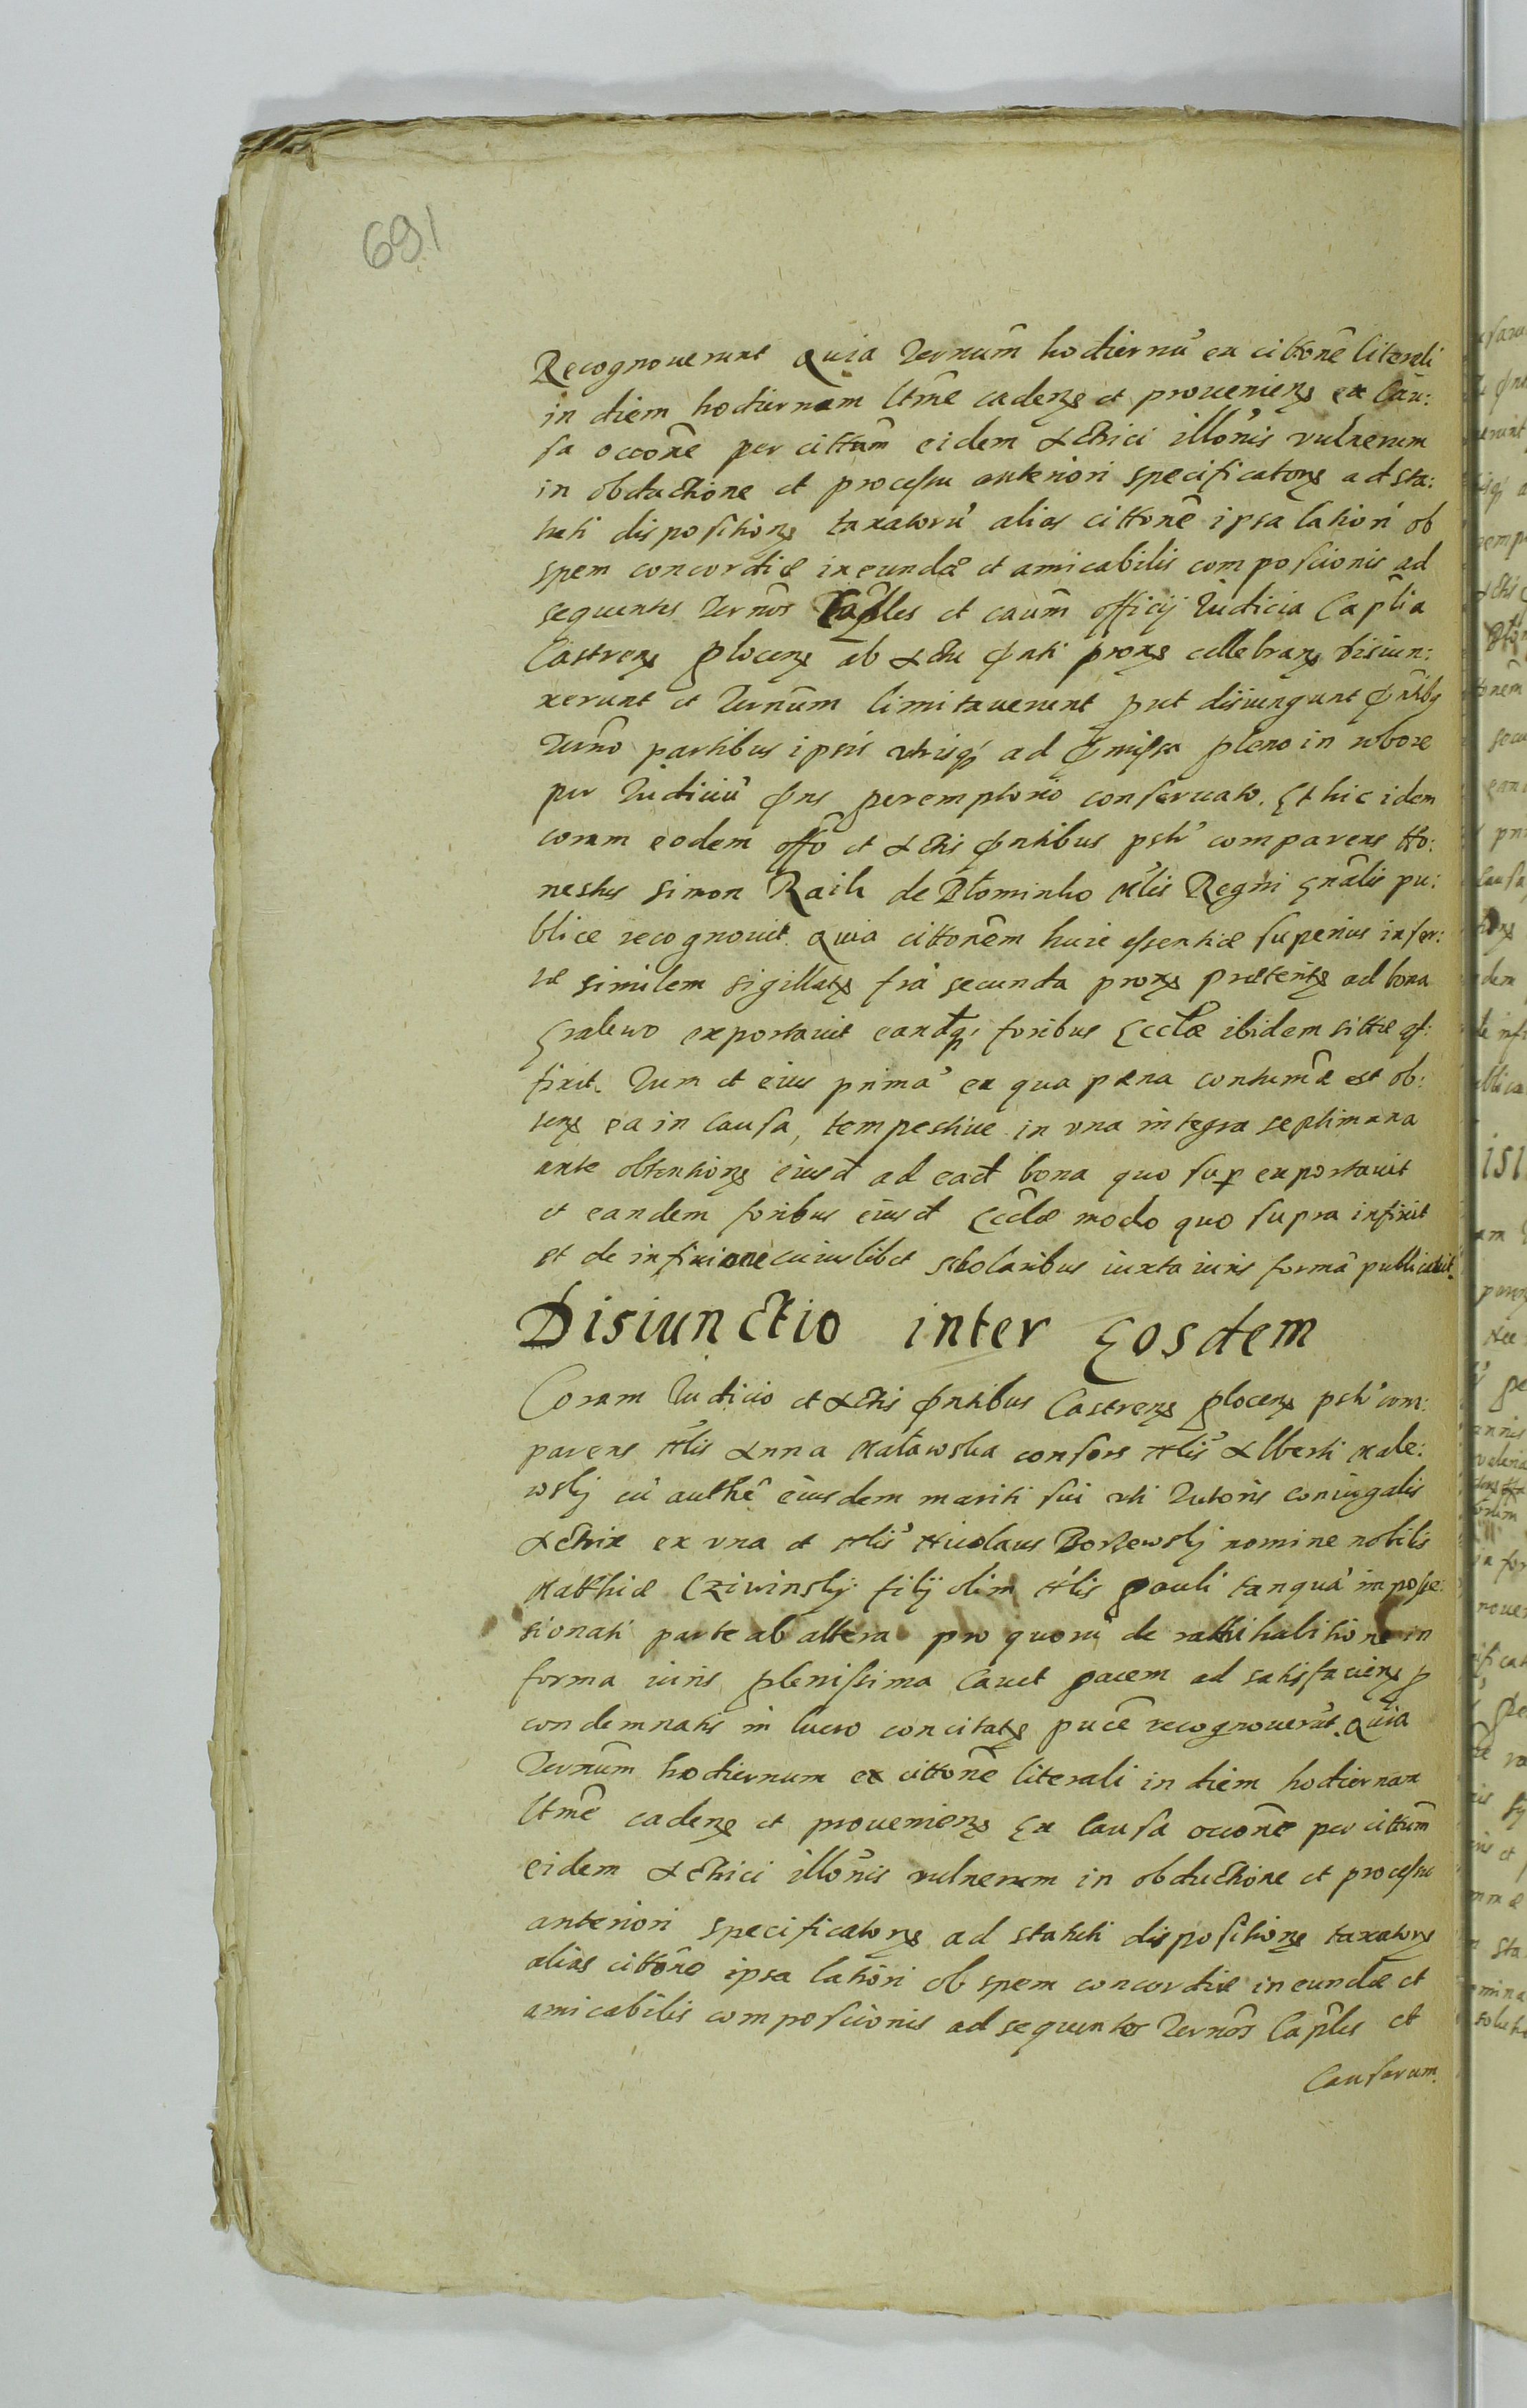 691
Recognouerunt Quia Termũm hodiernũ ex cittonẽ literali
in diem hodiernam ltmẽ cadenẓ et proueniens ex Cau:
sa occõne per cittum eidem Actrici illõnis vulnerum
in obductione et processu anteriori specificatorẓ ad sta:
tuti dispositionẓ taxatorũ alias cittonẽ ipsa latiori ob
spem concordiæ ineundæ et amicabilis composcionis ad
sequentes Termõs Caples et caũm officij Iudicia Caplia
Castrenẓ Plocenẓ ab Actu pnti proxẓ cellebranẓ disiun:
xerunt et Termũm limitauerunt put disiungunt pntibꝫ
Termõ partibus ipsis utrisqꝫ ad pmissa pleno in robore
per Iudiciũ pns peremptorio conseruato. Et hic idem
coram eodem offõ et Actis pntibus pstr̃ comparens Ho:
nestus Simon Raik de Płominko Mlis Regni Gnãlis pu:
blice recognouit. Quia cittonẽm huic essentiæ superius inser:
tæ similem sigillatẓ fria secunda proxẓ præteritẓ ad bona
Gralewo exportauit eandqꝫ foribus Ecclæ ibidem sittæ af:
fixit. Tum et eius primã ex qua pæna contumẽ est ob:
tenẓ ea in causa, tempestiue in vna integra septimana
ante obtentionẓ eiusd ad ead bona quo sup exportauit
et eandem foribus eiusd Ecclæ modo quo supra infixit
et de infixione cuiuslibet scholaribus iuxta iuris formã publicauit.
Disiunctio inter Eosdem
Coram Iudicio et Actis pntibus Castrenẓ Plocenẓ pstr̃ com:
parens Nlis Anna Małowska consors Nlis Alberti Male:
wskj cũ authẽ eiusdem mariti sui uti Tutoris coniugalis
Actrix ex vna et Nlis Nicolaus Borzewskj nomine nobilis
Matthiæ Cziwinskj filij olim Nlis Pauli tanquã imposse:
sionati parte ab altera pro quorũ de rattihabitione in
forma iuris plenissima Cauet Pacem ad satisfaciens p
condemnatis in lucro concitatẓ pucẽ recognouerũt. Quia
Termũm hodiernum ex cittonẽ literali in diem hodiernam
ltmẽ cadenẓ et prouenienẓ Ex Causa occonẽ per cittũm
eidem Actrici illõnis vulnerum in obductione et processu
anteriori specificatorẓ ad statuti dispositionẓ taxatorẓ
alias cittonẽ ipsa latiõri ob spem concordiæ ineundæ et
amicabilis composcionis ad sequentes Termõs Caples et
Causarum.